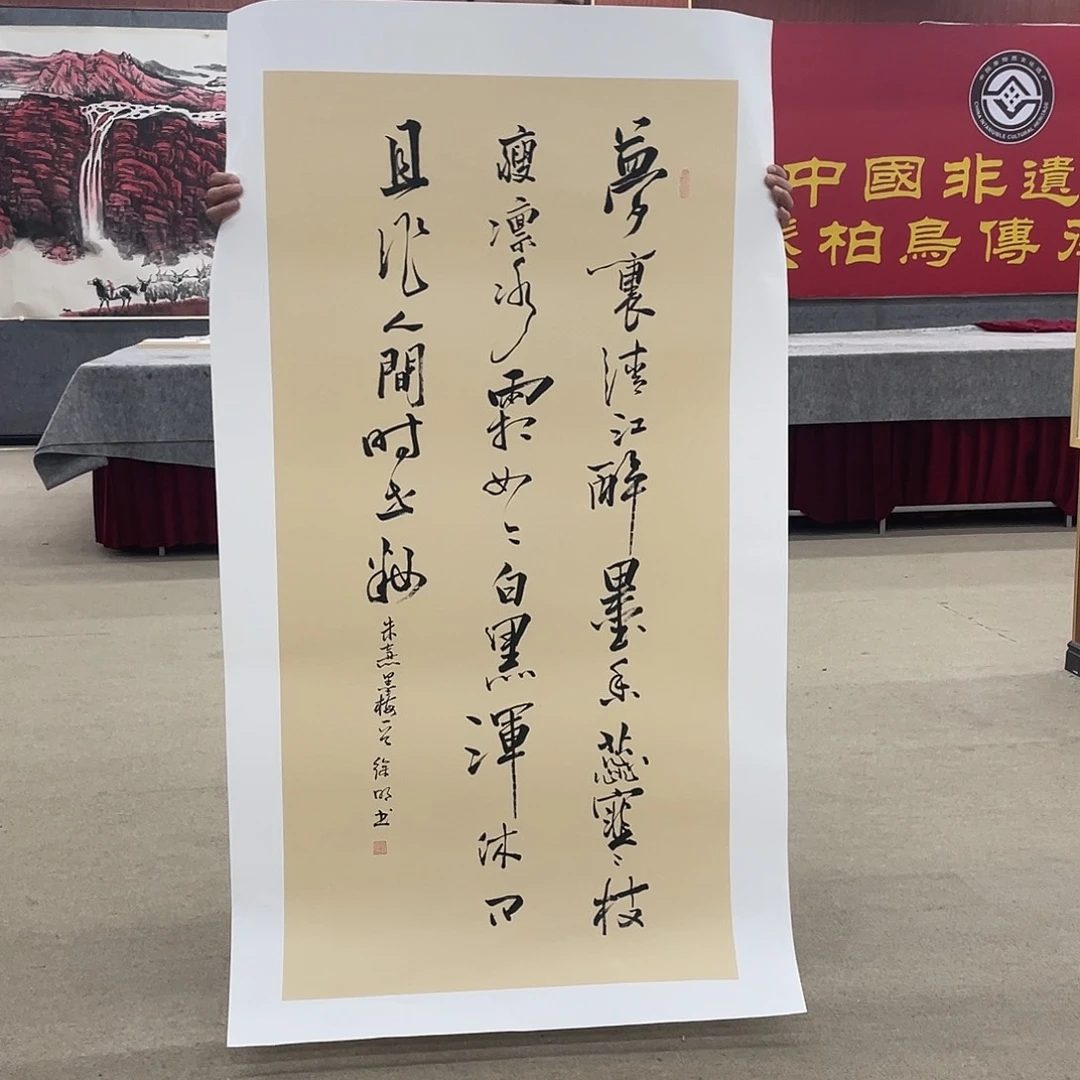 夢裏清江醉墨香蕊寒枝
瘦凛冰霜如今白黑渾休问
且作人間时世粧
朱熹墨梅一首 徐明书
中國非遺
柏鳥傳
CHINA INTANGIBLE CULTURAL HERITAGE